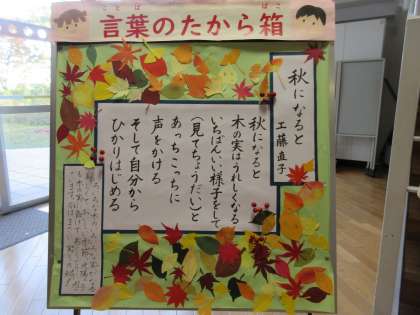 ことば
ばこ
言葉のたから箱
秋になると
工藤直子
秋になると
木の実はうれしくなる
いちばんいい様子をして
(見てちょうだい)と
あっちこっちに
声をかける
そして自分から
ひかりはじめる